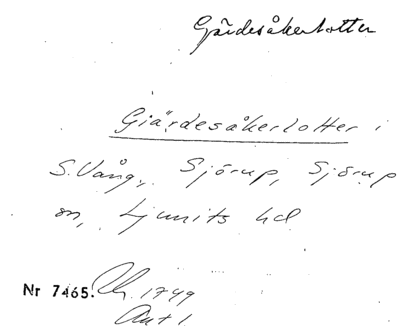 Gärdesåkerlotter
Giärdesåkerlotter i
S. Vång, Sjörup, Sjörup
sn, Ljunits hd
Nr 7465. Lh. 1749
Akt 1